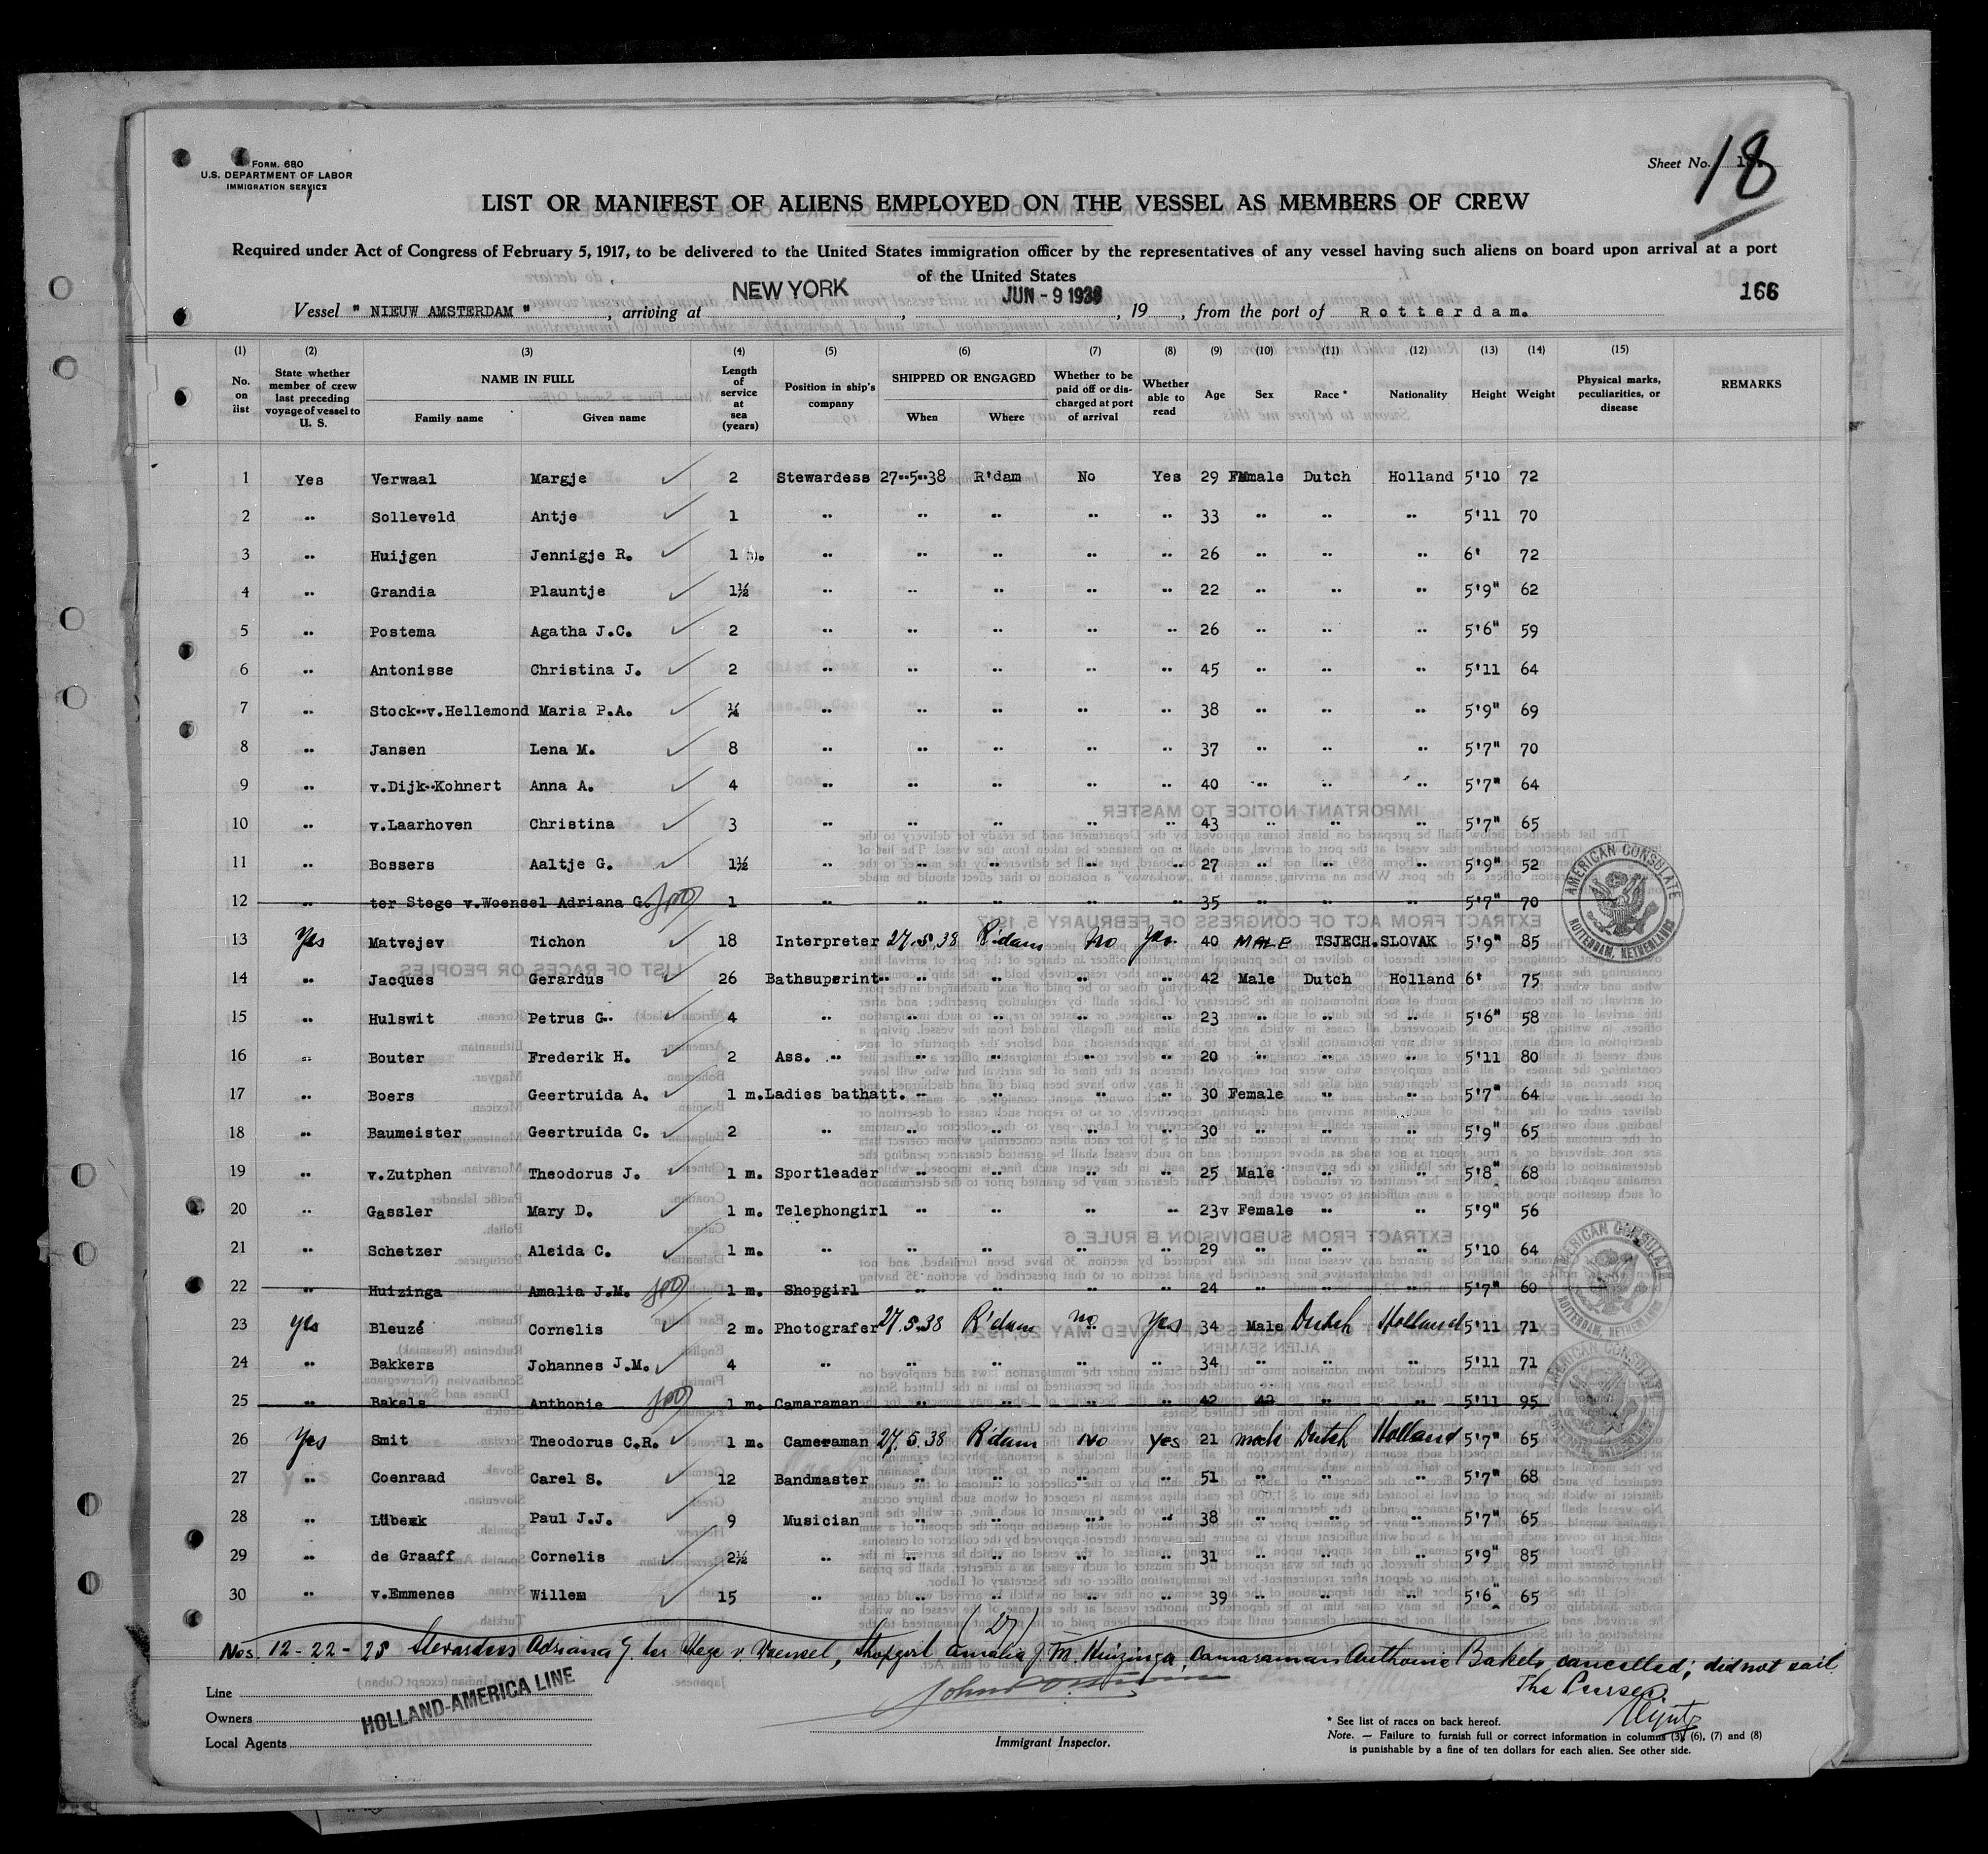 Form. 680
U.S. DEPARTMENT OF LABOR
IMMIGRATION SERVICE
Sheet No. 18
LIST OR MANIFEST OF ALIENS EMPLOYED ON THE VESSEL AS MEMBERS OF CREW
Required under Act of Congress of February 5, 1917, to be delivered to the United States immigration officer by the representatives of any vessel having such aliens on board upon arrival at a port
of the United States
166
Vessel " NIEUW AMSTERDAM ", arriving at NEW YORK, JUN - 9 1938, 19, from the port of Rotterdam.
(1) (2) (3) (4) (5) (6) (7) (8) (9) (10) (11) (12) (13) (14) (15)
No. on list State whether member of crew last preceding voyage of vessel to U. S. NAME IN FULL Family name Given name Length of service at sea (years) Position in ship's company SHIPPED OR ENGAGED When Where Whether to be paid off or discharged at port of arrival Whether able to read Age Sex Race * Nationality Height Weight Physical marks, peculiarities, or disease REMARKS
1 Yes Verwaal Margje 2 Stewardess 27-5-38 R'dam No Yes 29 Female Dutch Holland 5'10 72
2 " Solleveld Antje 1 " " " " " 33 " " " 5'11 70
3 " Huijgen Jennigje R. 1 m. " " " " " 26 " " " 6' 72
4 " Grandia Plauntje 1½ " " " " " 22 " " " 5'9" 62
5 " Postema Agatha J.C. 2 " " " " " 26 " " " 5'6" 59
6 " Antonisse Christina J. 2 " " " " " 45 " " " 5'11 64
7 " Stock-v.Hellemond Maria P.A. ¼ " " " " " 38 " " " 5'9" 69
8 " Jansen Lena M. 8 " " " " " 37 " " " 5'7" 70
9 " v.Dijk-Kohnert Anna A. 4 " " " " " 40 " " " 5'7" 64
10 " v.Laarhoven Christina 3 " " " " " 43 " " " 5'7" 65
11 " Bossers Aaltje G. 1½ " " " " " 27 " " " 5'9" 52
12 " ter Stege v.Woensel Adriana G. 1 " " " " " 35 " " " 5'7" 70
13 Yes Matvejev Tichon 18 Interpreter 27.5.38 R'dam No Yes 40 MALE TSJECH.SLOVAK 5'9" 85
14 " Jacques Gerardus 26 Bathsuprint " " " " 42 Male Dutch Holland 6' 75
15 " Hulswit Petrus G. 4 " " " " " 23 " " " 5'6" 58
16 " Bouter Frederik H. 2 Ass. " " " " " 20 " " " 5'11 80
17 " Boers Geertruida A. 1 m. Ladies bathatt. " " " " 30 Female " " 5'7" 64
18 " Baumeister Geertruida C. 2 " " " " " 30 " " " 5'9" 65
19 " v.Zutphen Theodorus J. 1 m. Sportleader " " " " 25 Male " " 5'8" 68
20 " Gassler Mary D. 1 m. Telephongirl " " " " 23v Female " " 5'9" 56
21 " Schetzer Aleida C. 1 m. " " " " " 29 " " " 5'10 64
22 " Huizinga Amalia J.M. 1 m. Shopgirl " " " " 24 " " " 5'7" 60
23 yes Bleuzé Cornelis 2 m. Photografer 27.5.38 R'dam no Yes 34 Male Dutch Holland 5'11 71
24 " Bakkers Johannes J.M. 4 " " " " " 34 " " " 5'11 71
25 " Bakels Anthonie 1 m. Camaraman " " " " 42 42 " " 5'11 95
26 Yes Smit Theodorus C.R. 1 m. Cameraman 27.5.38 R'dam No Yes 21 male Dutch Holland 5'7" 65
27 " Coenraad Carel S. 12 Bandmaster " " " " 51 " " " 5'7" 68
28 " Lübeck Paul J.J. 9 Musician " " " " 38 " " " 5'7" 65
29 " de Graaff Cornelis 2½ " " " " " 31 " " " 5'9" 85
30 " v.Emmenes Willem 15 " " " " " 39 " " " 5'6" 65
(27)
Nos. 12-22-25 Stewardess Adriana G. ter Stege v. Woensel, Shopgirl Amalia J.M. Huizinga, Camaraman Anthonie Bakels, cancelled; did not sail
The Purser.
Line
Owners HOLLAND-AMERICA LINE
Local Agents
Immigrant Inspector.
* See list of races on back hereof.
Note. — Failure to furnish full or correct information in columns (3) (6), (7) and (8)
is punishable by a fine of ten dollars for each alien. See other side.
AMERICAN CONSULATE
ROTTERDAM, NETHERLAND
AMERICAN CONSULATE
ROTTERDAM, NETHERLAND
AMERICAN CONSULATE